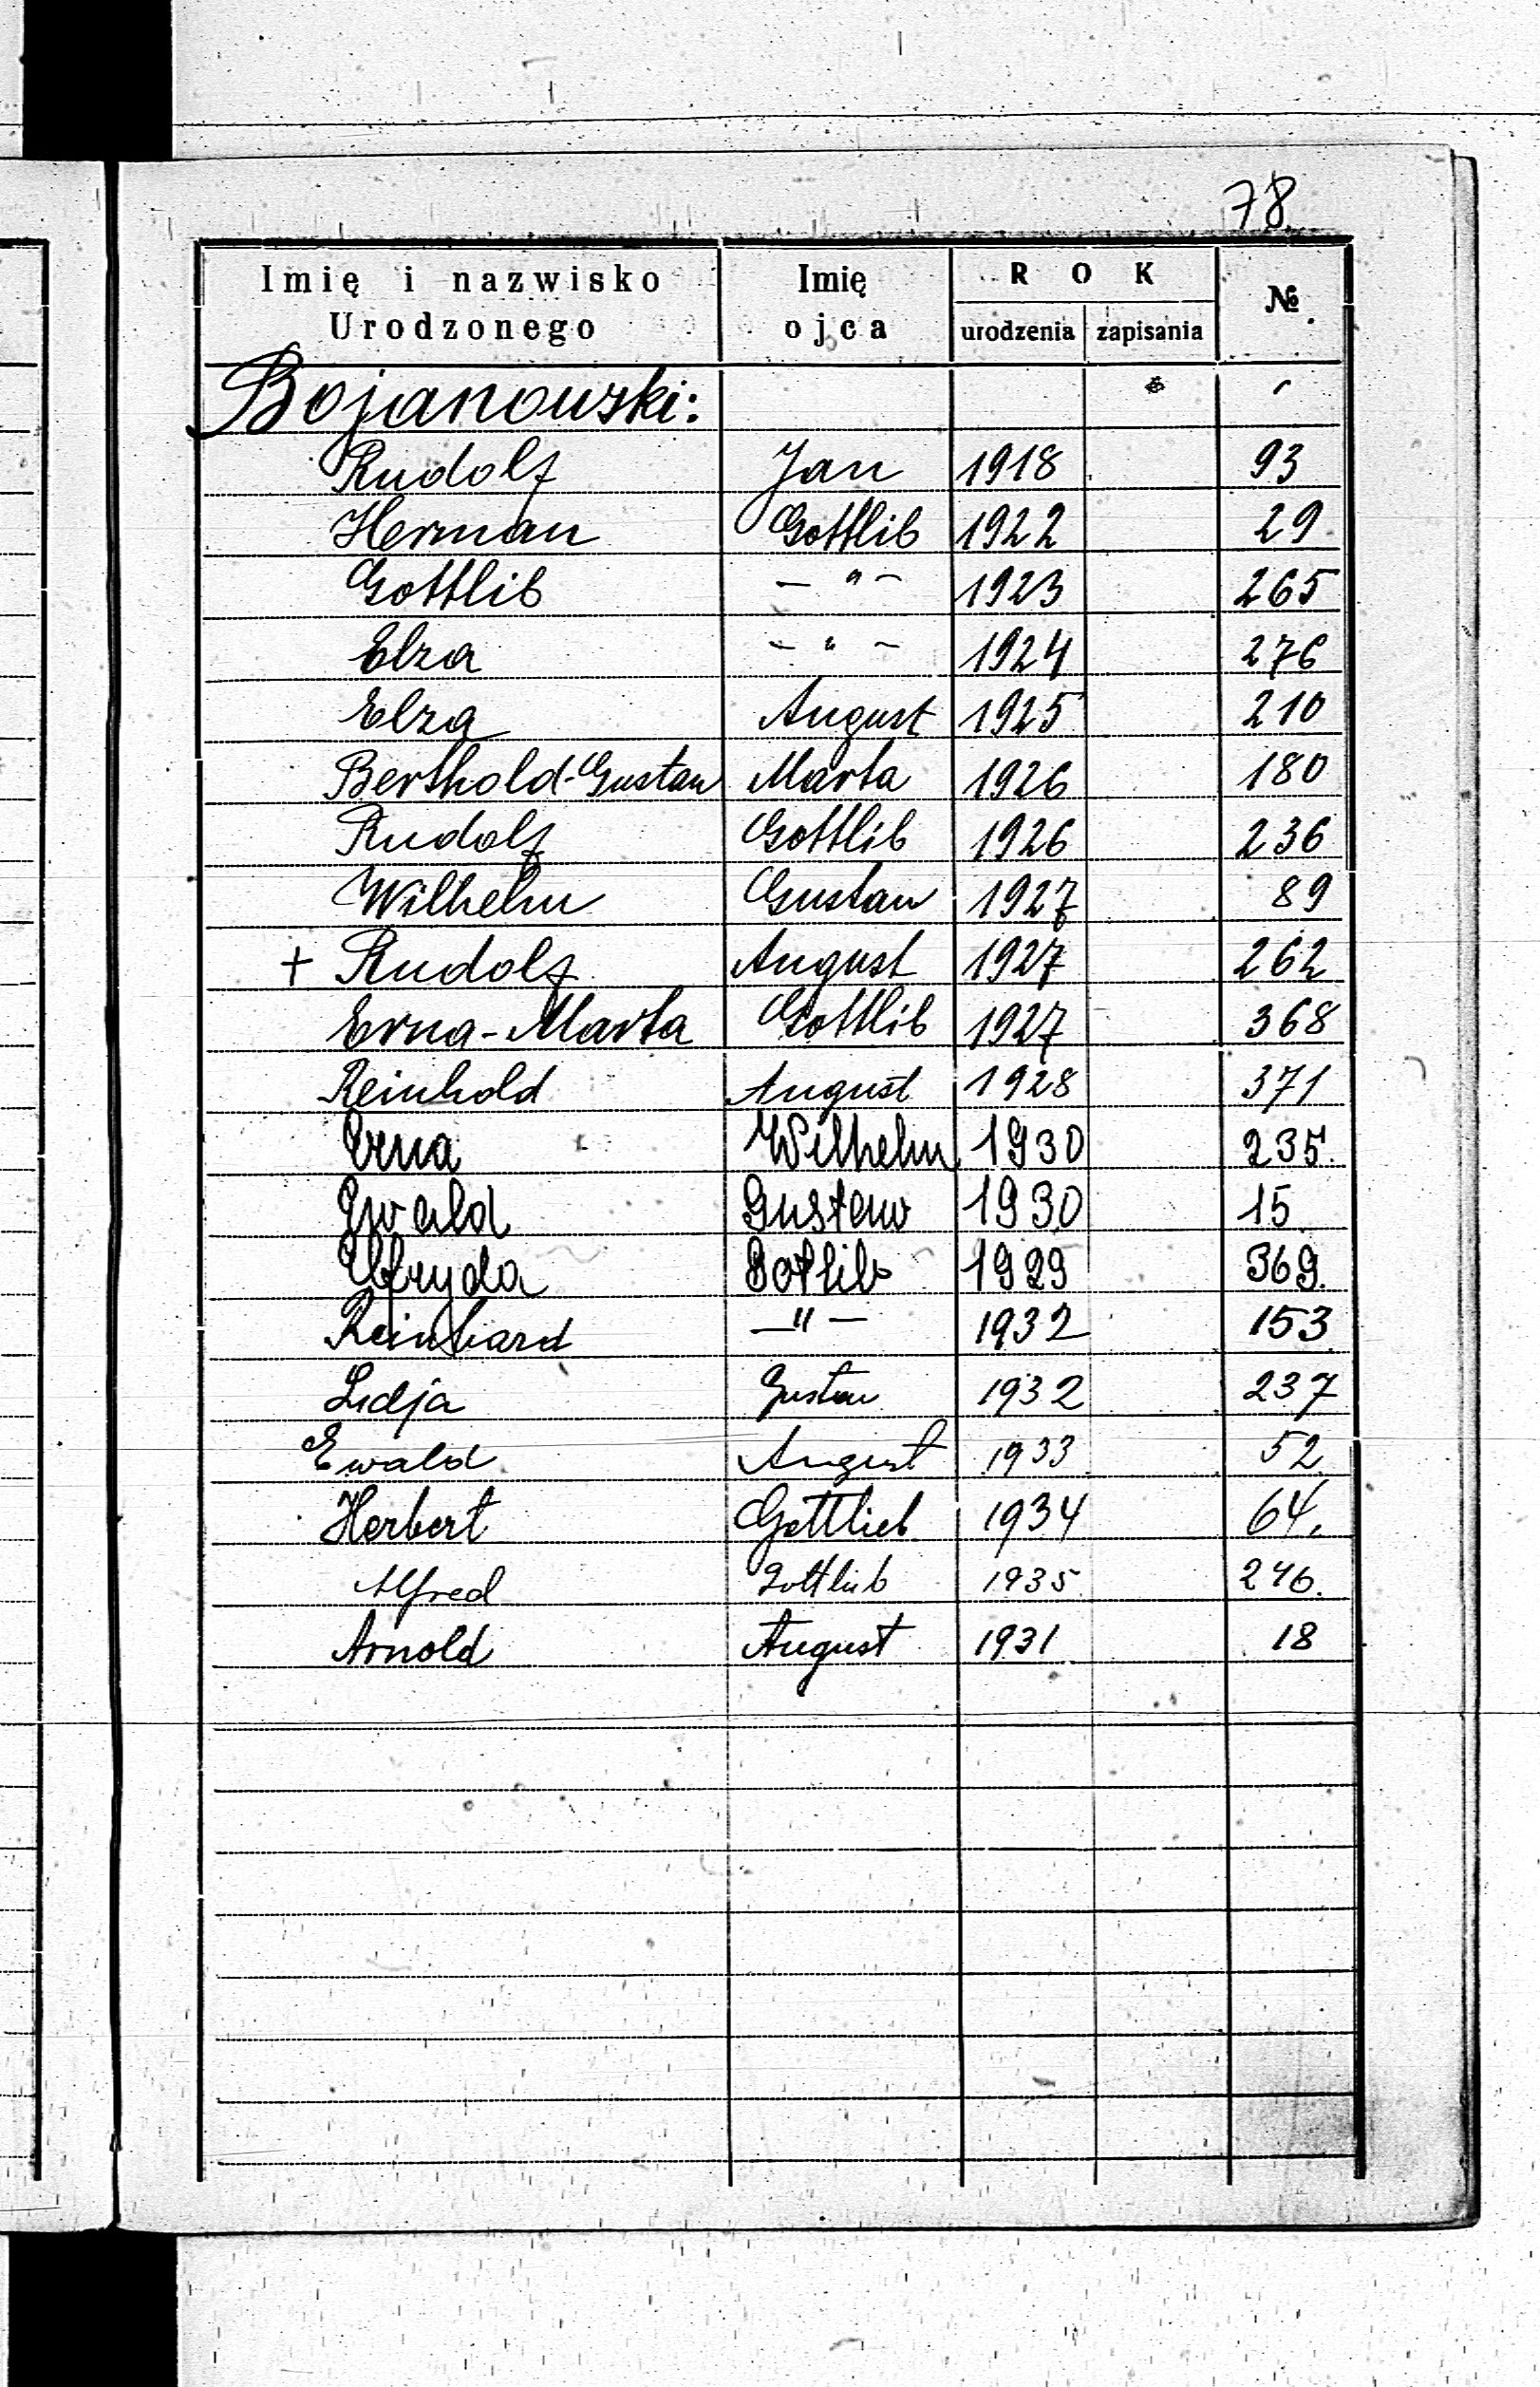 78.
Imię i nazwisko Urodzonego Imię ojca ROK urodzenia zapisania №
Bojanowski:
Rudolf Jan 1918 93
Herman Gottlib 1922 29
Gottlib — " — 1923 265
Elza — " — 1924 276
Elza August 1925 210
Berthold-Gustaw Marta 1926 180
Rudolf Gottlib 1926 236
Wilhelm Gustaw 1927 89
+ Rudolf August 1927 262
Erna-Marta Gottlib 1927 368
Reinhold August 1928 371
Erna Wilhelm 1930 235.
Ewald Gustaw 1930 15
Elfryda Gotlib 1929 369.
Reinhard — " — 1932 153
Lidja Gustaw 1932 237
Ewald August 1933 52
Herbert Gottlieb 1934 64.
Alfred Gottlieb 1935 246.
Arnold August 1931 18